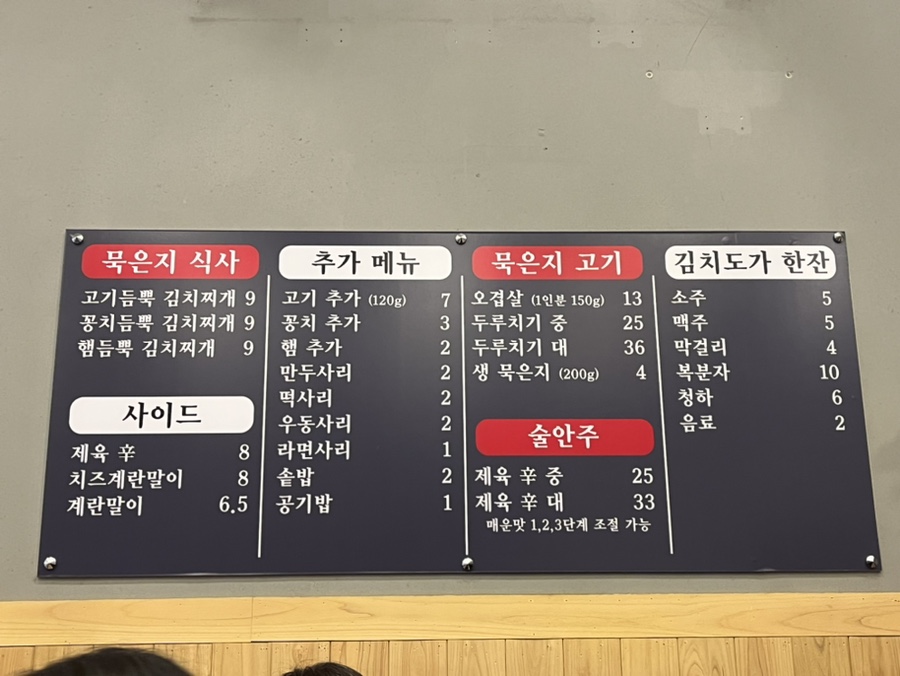 묵은지 식사
고기듬뿍 김치찌개 9
꽁치듬뿍 김치찌개 9
햄듬뿍 김치찌개 9
사이드
제육 辛 8
치즈계란말이 8
계란말이 6.5
추가 메뉴
고기 추가 (120g) 7
꽁치 추가 3
햄 추가 2
만두사리 2
떡사리 2
우동사리 2
라면사리 1
솥밥 2
공기밥 1
묵은지 고기
오겹살 (1인분 150g) 13
두루치기 중 25
두루치기 대 36
생 묵은지 (200g) 4
술안주
제육 辛 중 25
제육 辛 대 33
매운맛 1,2,3단계 조절 가능
김치도가 한잔
소주 5
맥주 5
막걸리 4
복분자 10
청하 6
음료 2